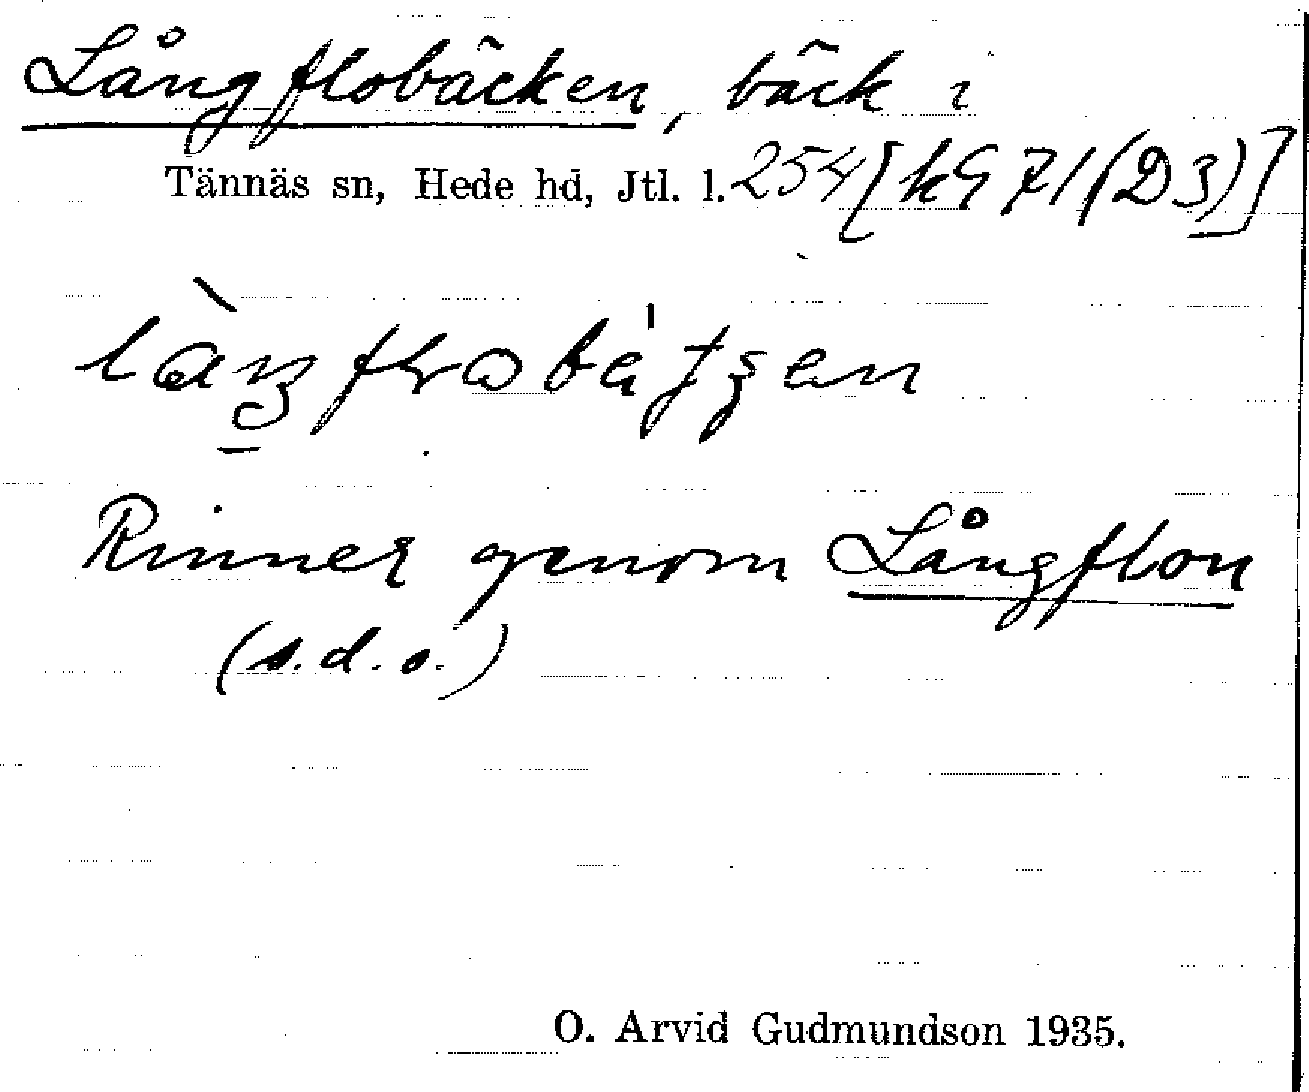 Långflobäcken, bäck i
Tännäs sn, Hede hd, Jtl. l. 254 [kG 71 (D3)]
Rinner genom Långflon
(s.d.o.)
O. Arvid Gudmundson 1935.